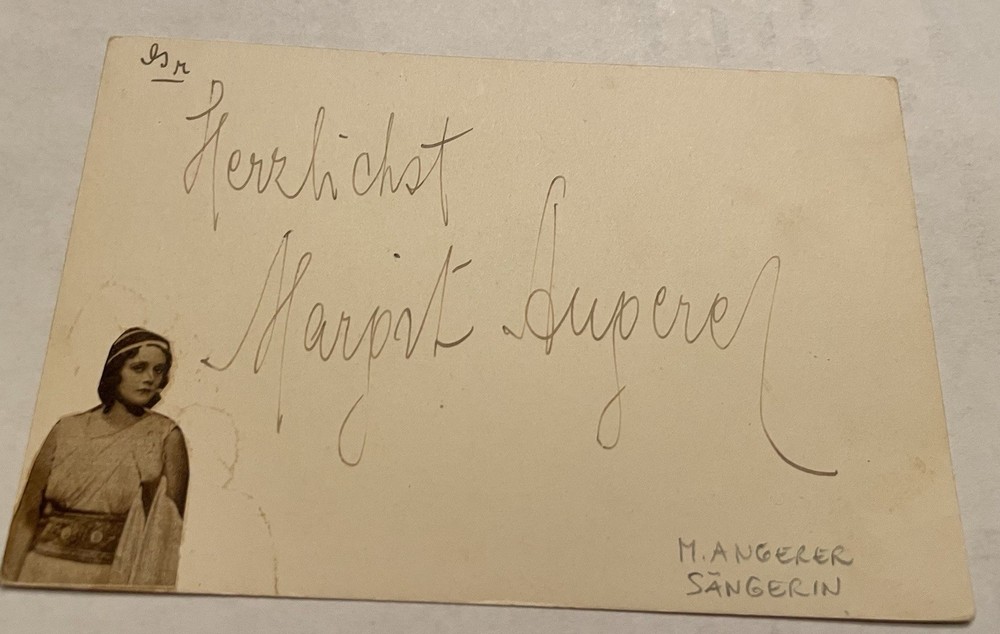 Herzlichst
Margit Angerer
M. ANGERER
SÄNGERIN